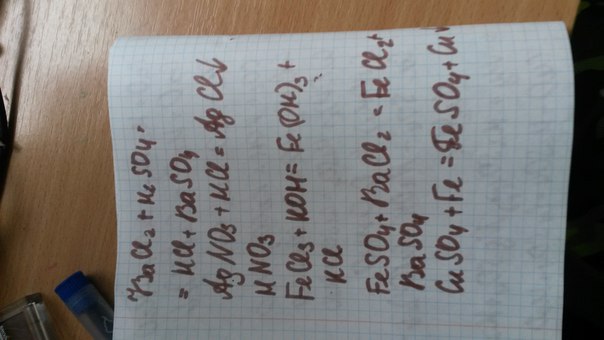 BaCl2 + H2SO4 =
= HCl + BaSO4
AgNO3 + HCl = AgCl↓
HNO3
FeCl3 + KOH = Fe(OH)3 +
KCl
FeSO4 + BaCl2 = FeCl2 +
BaSO4
CuSO4 + Fe = FeSO4 + Cu↓